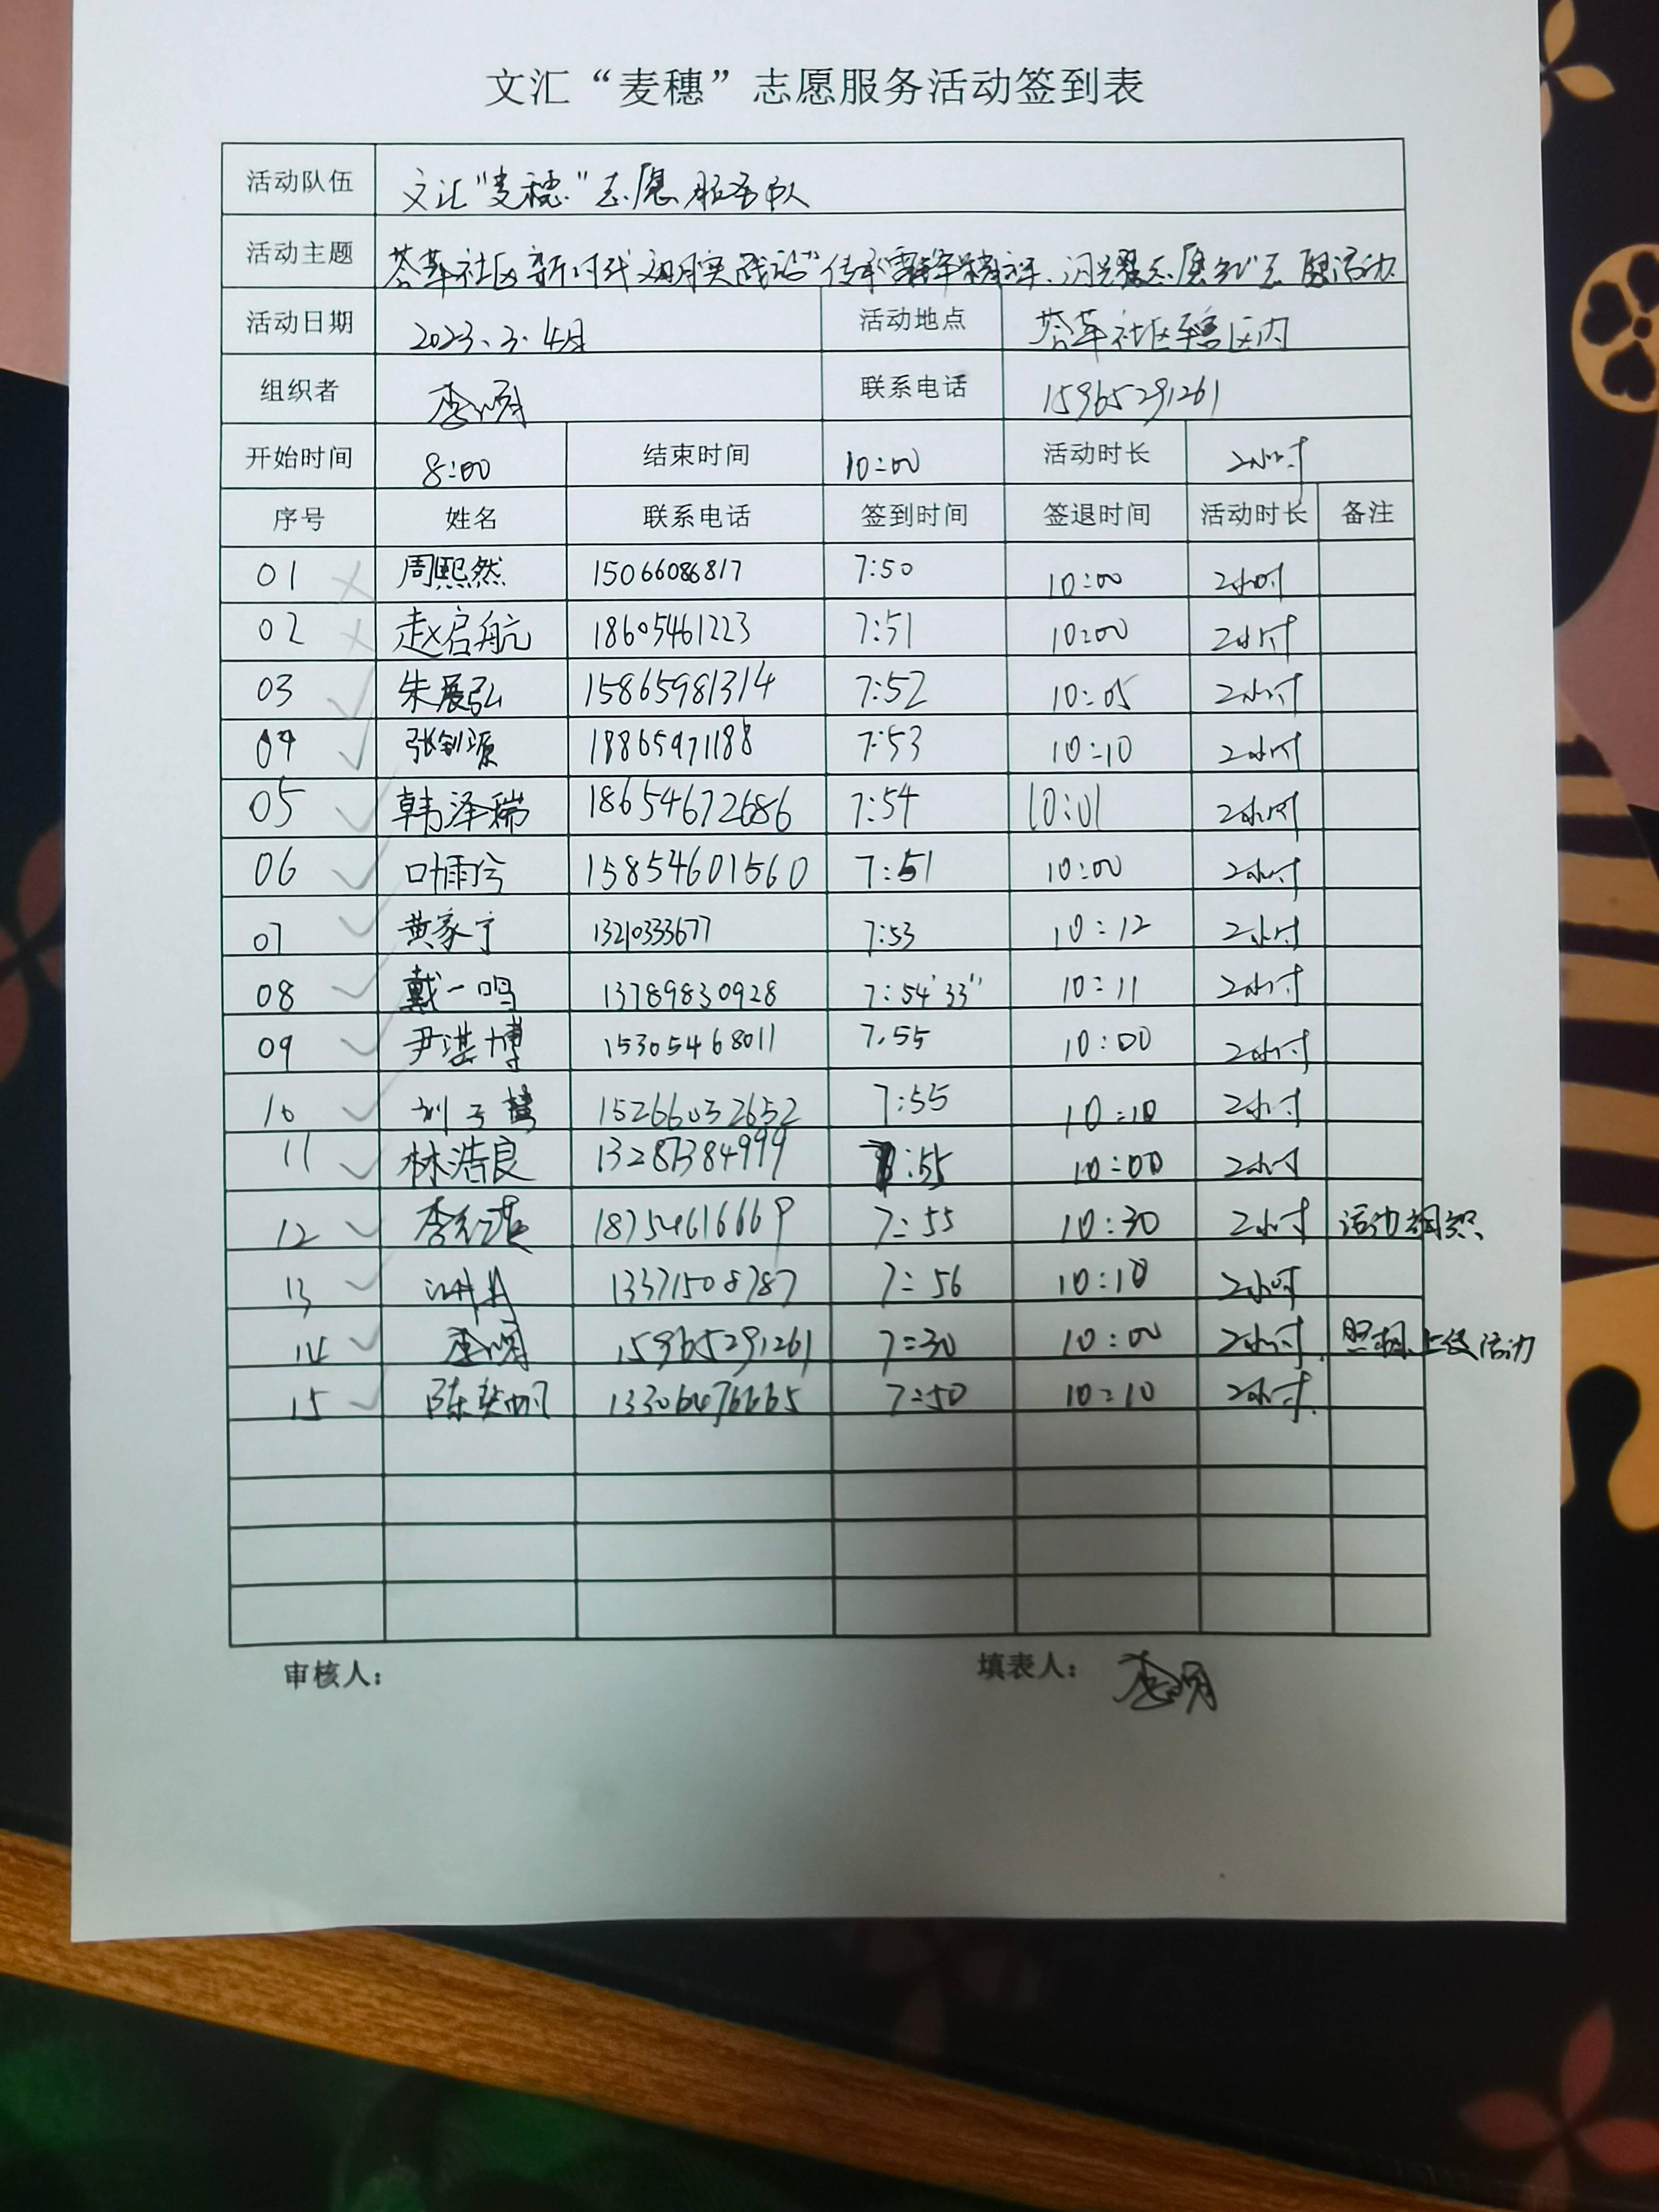 文汇“麦穗”志愿服务活动签到表
活动队伍 文汇“麦穗”志愿服务队
活动主题 荟萃社区新时代文明实践站“传承雷锋精神、闪耀志愿红”志愿活动
活动日期 2023.3.4日 活动地点 荟萃社区辖区内
组织者 李明 联系电话 15965291261
开始时间 8:00 结束时间 10:00 活动时长 2小时
序号 姓名 联系电话 签到时间 签退时间 活动时长 备注
01 周熙然 15066086817 7:50 10:00 2小时
02 赵启航 18605461223 7:51 10:00 2小时
03 朱展弘 15865981314 7:52 10:05 2小时
04 张钊源 18865971188 7:53 10:10 2小时
05 韩泽瑞 18654672686 7:54 10:01 2小时
06 叶雨兮 15854601560 7:51 10:00 2小时
07 黄家宁 13210333677 7:53 10:12 2小时
08 戴一鸣 13789830928 7:54'33" 10:11 2小时
09 尹湛博 15305468011 7.55 10:00 2小时
10 刘子 15266032652 7:55 10:10 2小时
11 林浩良 13287384999 7:55 10:00 2小时
12 李 18754616669 7:55 10:30 2小时 活动
13 13371508787 7:56 10:10 2小时
14 李明 15965291261 7:30 10:00 2小时 照相、上传活动
15 陈奕帆 13306476665 7:50 10:10 2小时.
审核人： 填表人： 李明